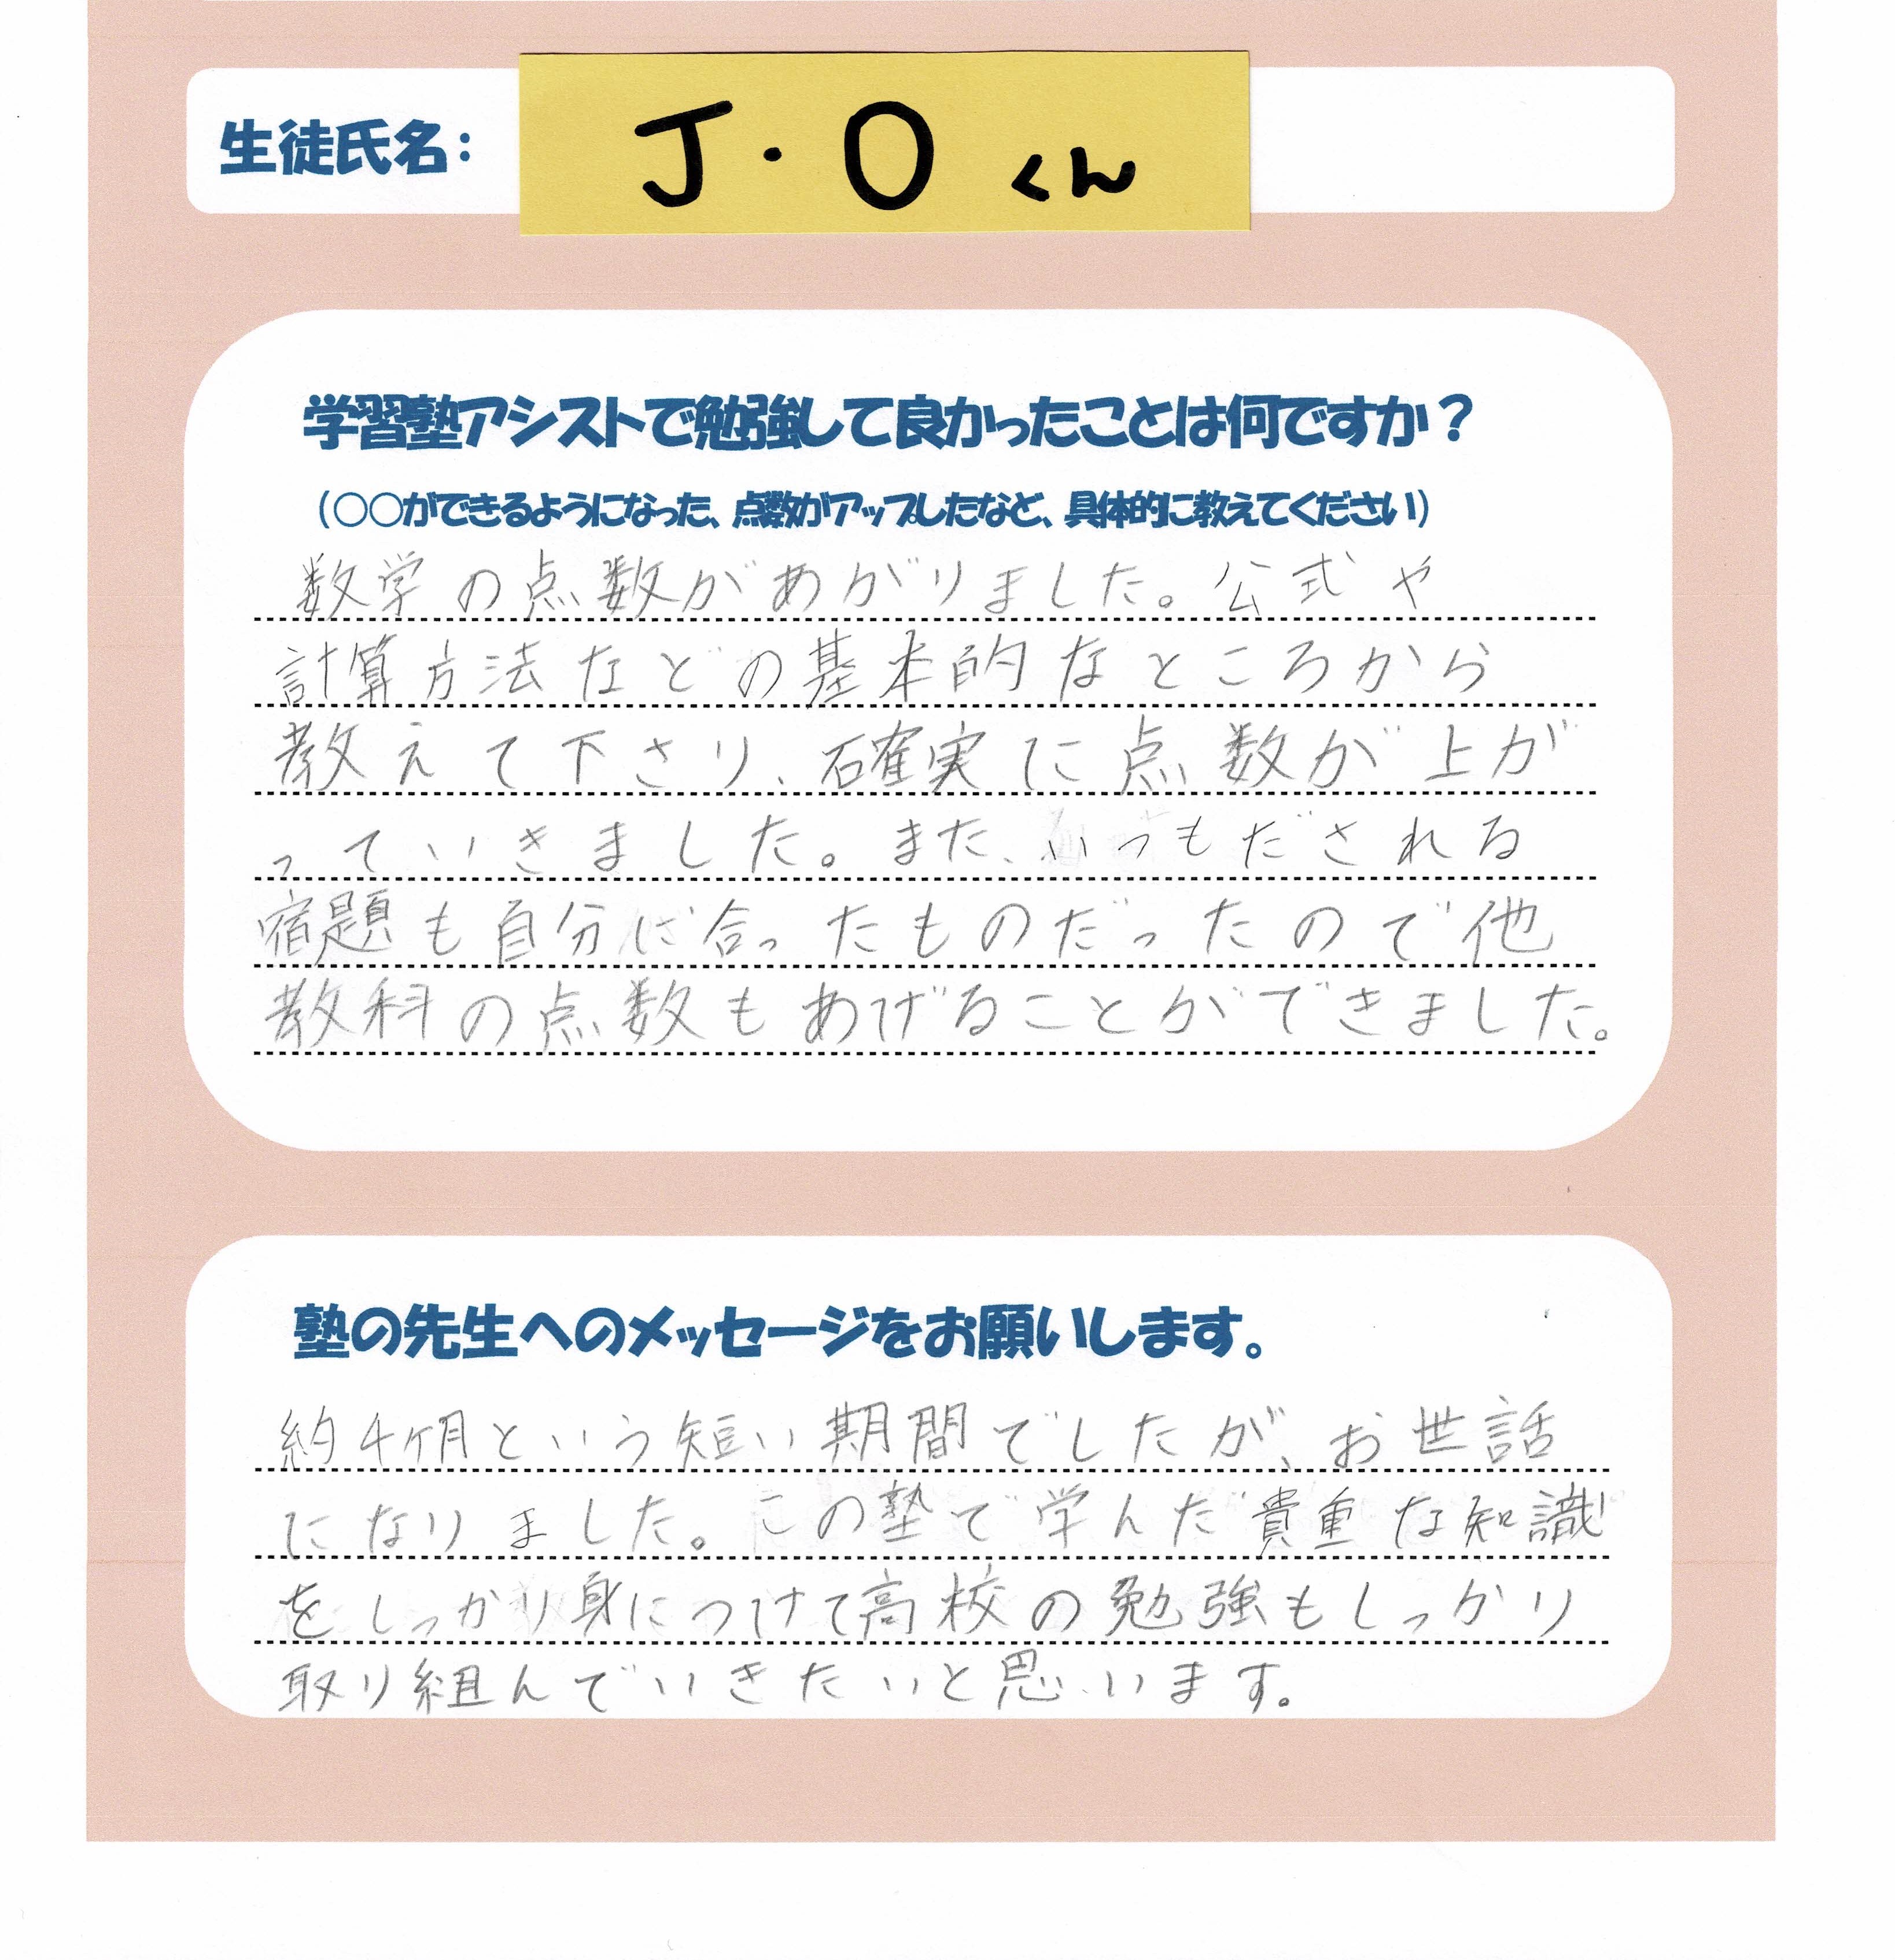 生徒氏名:
J・Oくん
学習塾アシストで勉強して良かったことは何ですか？
（○○ができるようになった、点数がアップしたなど、具体的に教えてください）
数学の点数があがりました。公式や
計算方法などの基本的なところから
教えて下さり、確実に点数が上が
っていきました。また、いつもだされる
宿題も自分に合ったものだったので他
教科の点数もあげることができました。
塾の先生へのメッセージをお願いします。
約4ケ月という短い期間でしたが、お世話
になりました。この塾で学んだ貴重な知識
をしっかり身につけて高校の勉強もしっかり
取り組んでいきたいと思います。